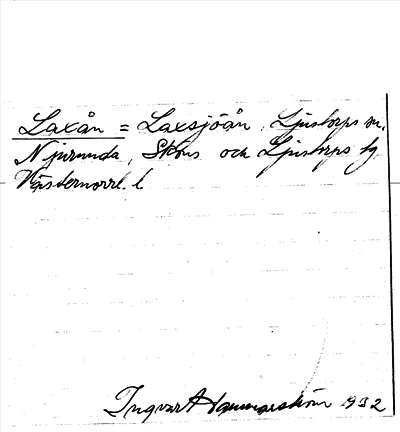 Laxån = Laxsjöån, Ljustorps sn,
Njurunda, Sköns och Ljustorps tg
Västernorrl. l.
Ingvar Hammarström 1932